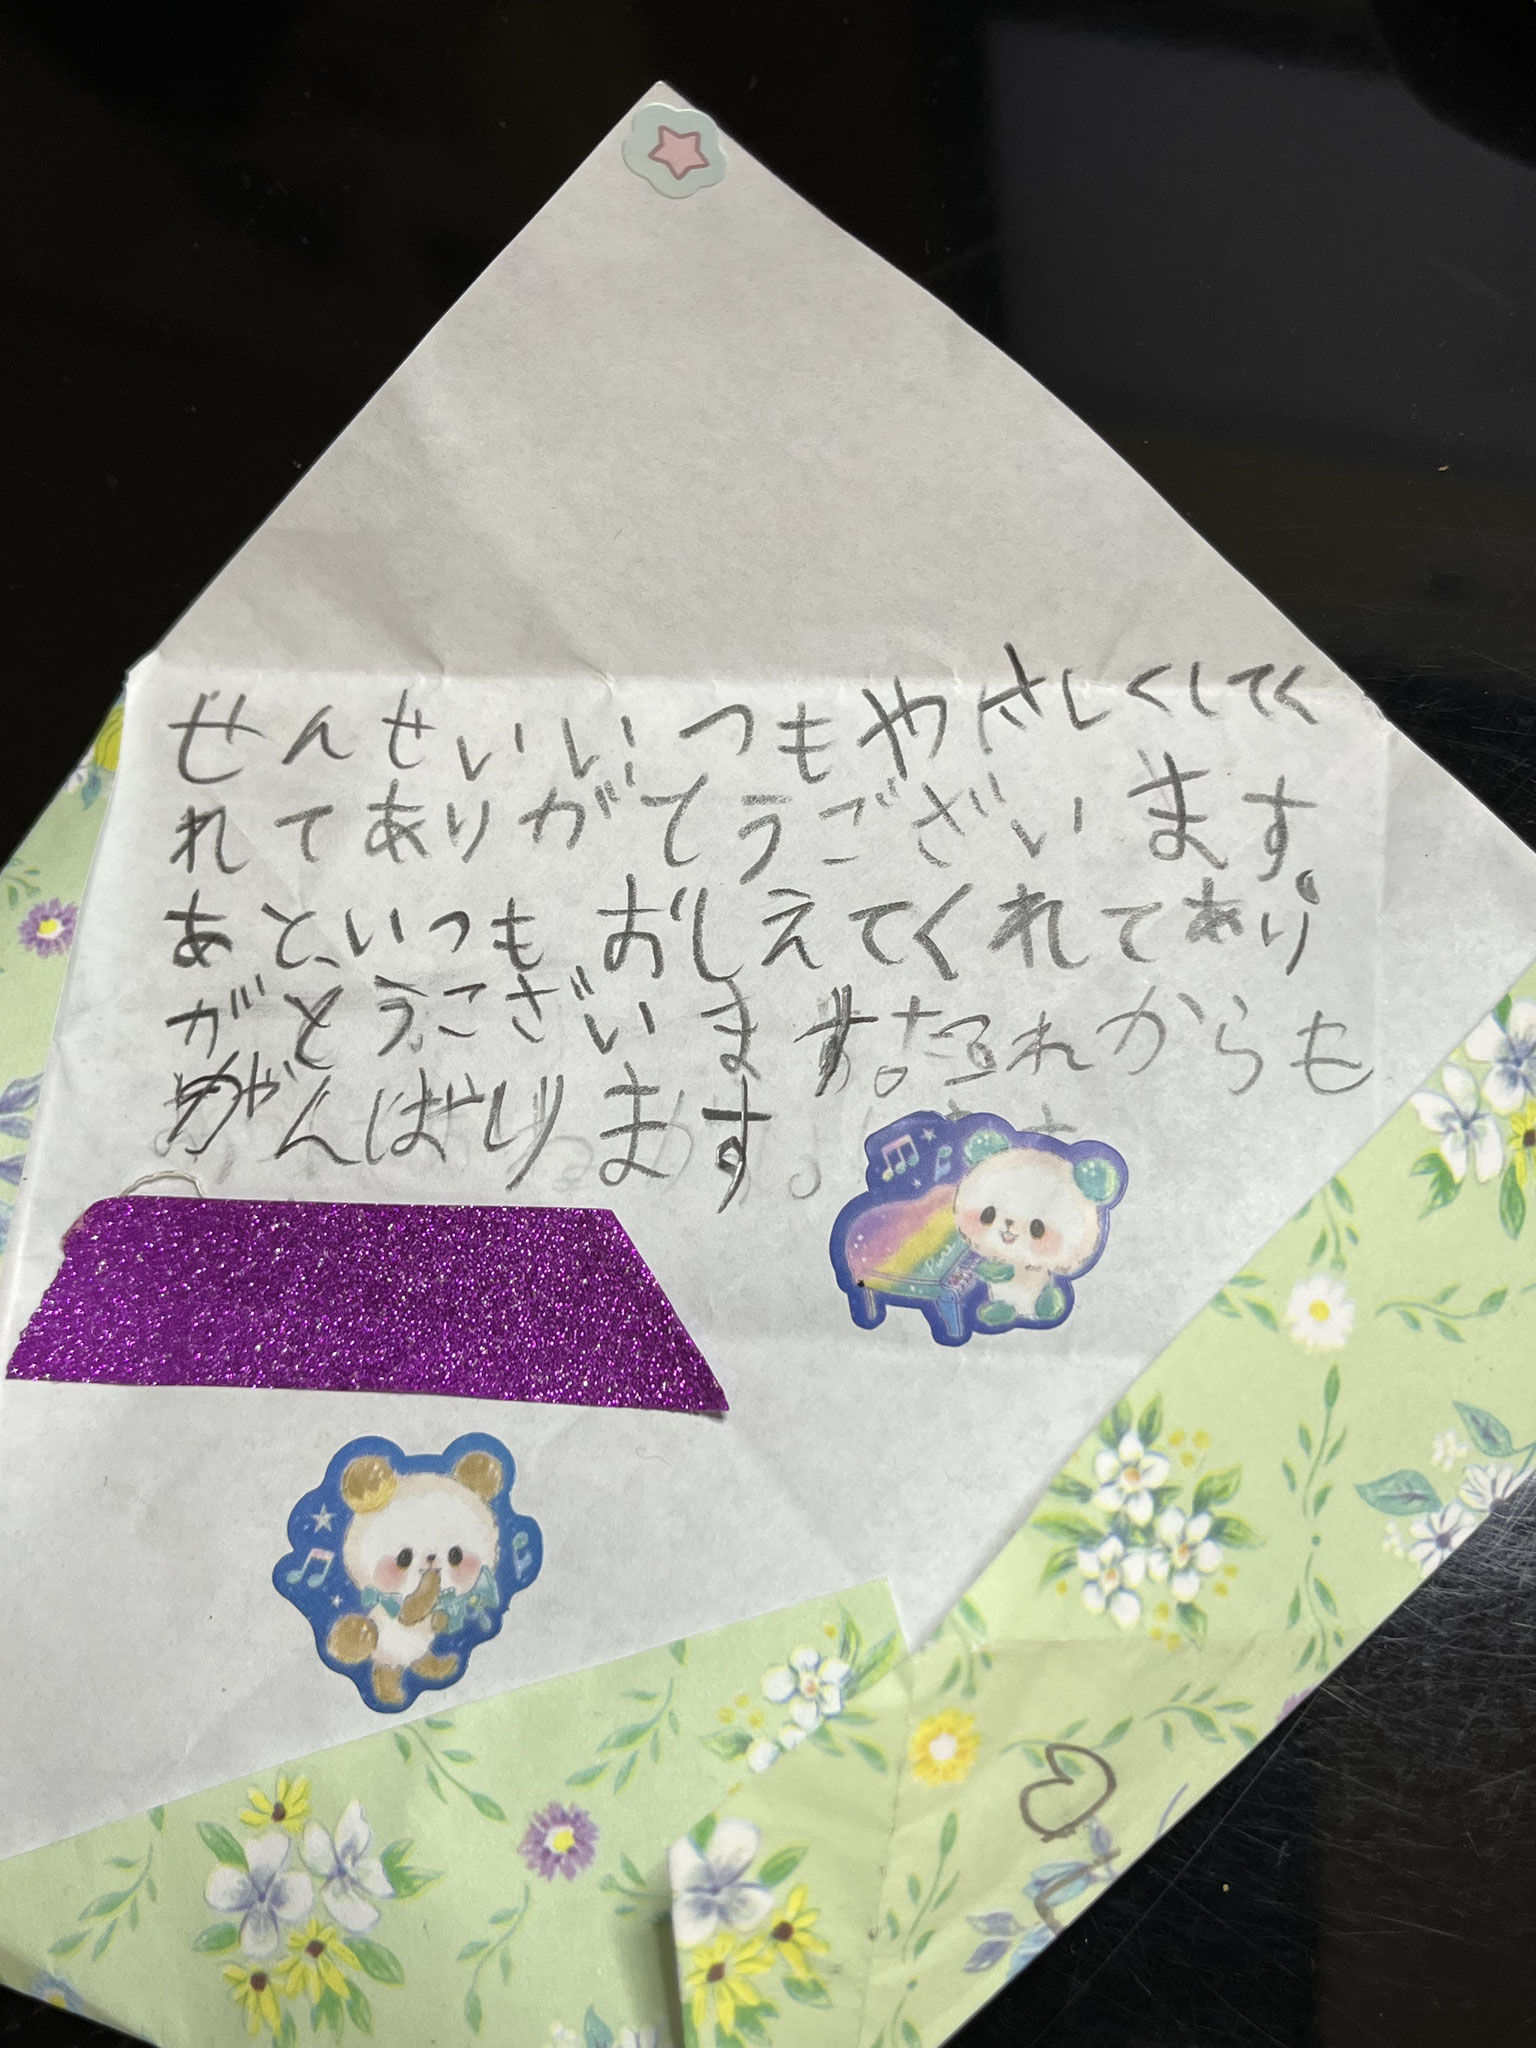 せんせいいつもやさしくしてく
れてありがてうございます。
あと、いつもおしえてくれてあり
がとうございます。これからも
がんばります。